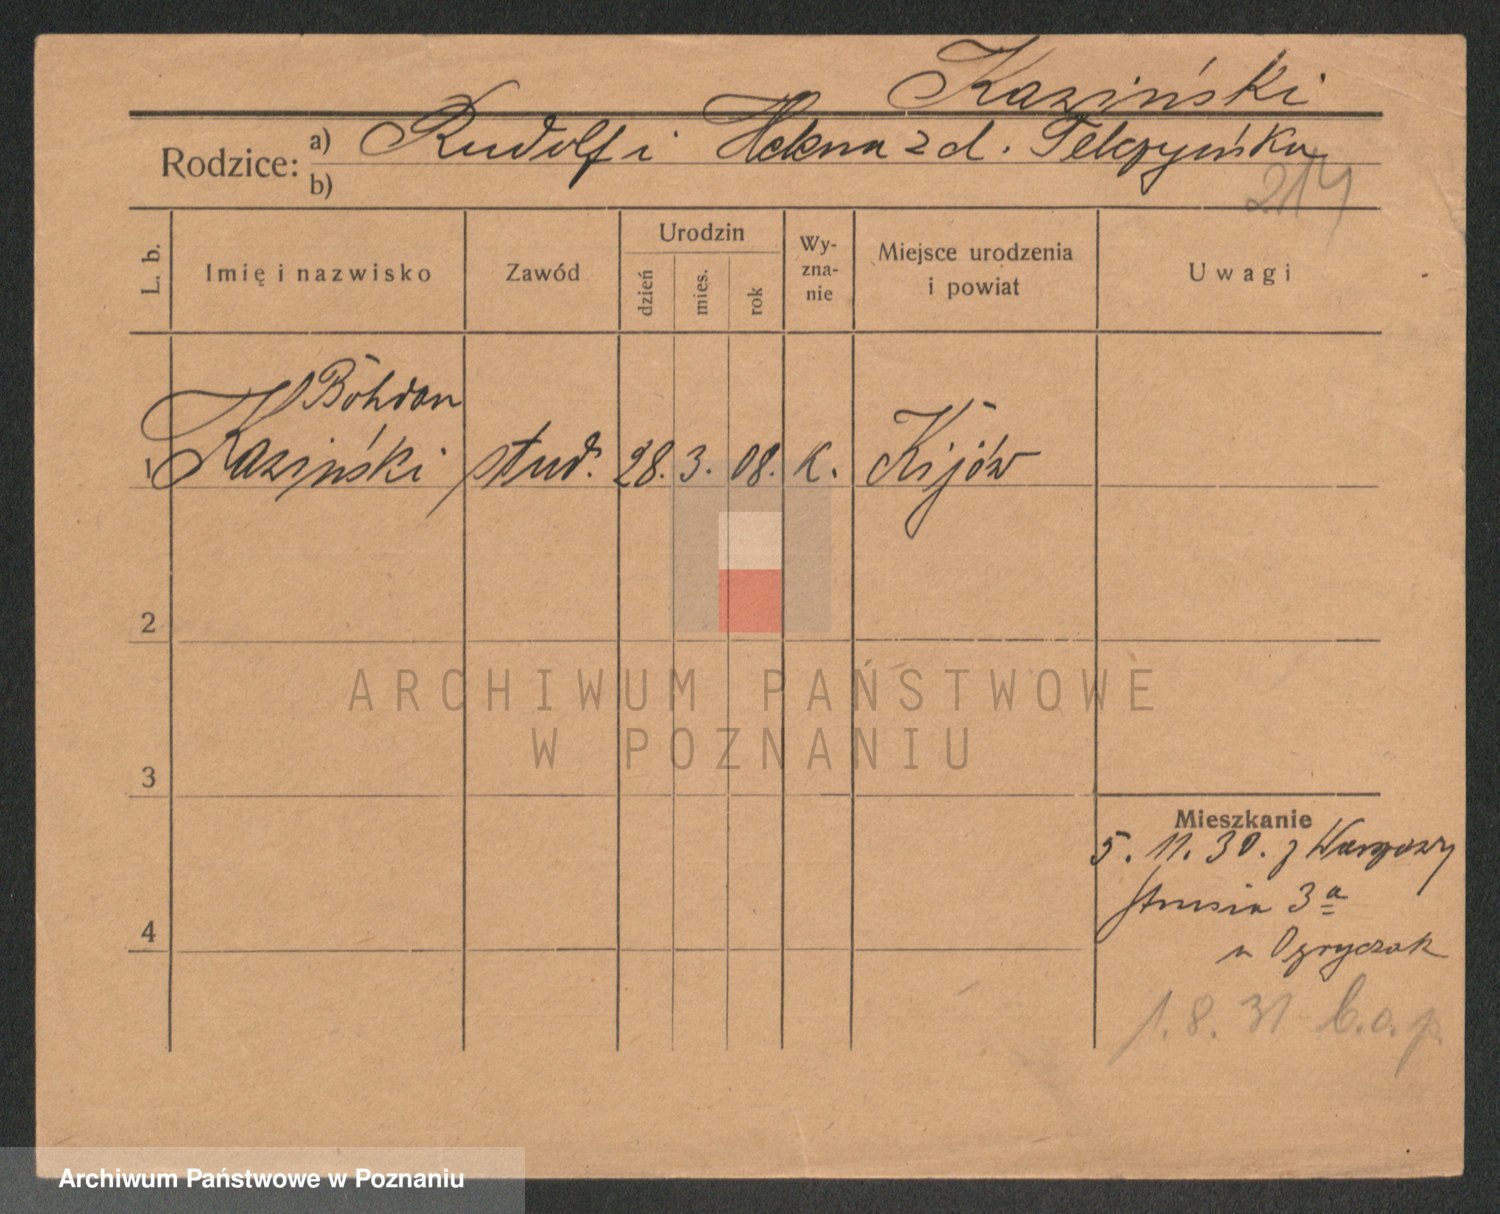 Kaziński
Rodzice: a) Rudolf i Helena z d. Felczyńska
b)
217
L. b. Imię i nazwisko Zawód Urodzin dzień mies. rok Wy-zna-nie Miejsce urodzenia i powiat Uwagi
Bohdan
1 Kaziński stud. 28. 3. 08. K. Kijów
2
ARCHIWUM PAŃSTWOWE
W POZNANIU
3
Mieszkanie
5. 11. 30. z Warszawy
Strusia 3a
4
u Ogryczak
1. 8. 31 b.o.p.
Archiwum Państwowe w Poznaniu